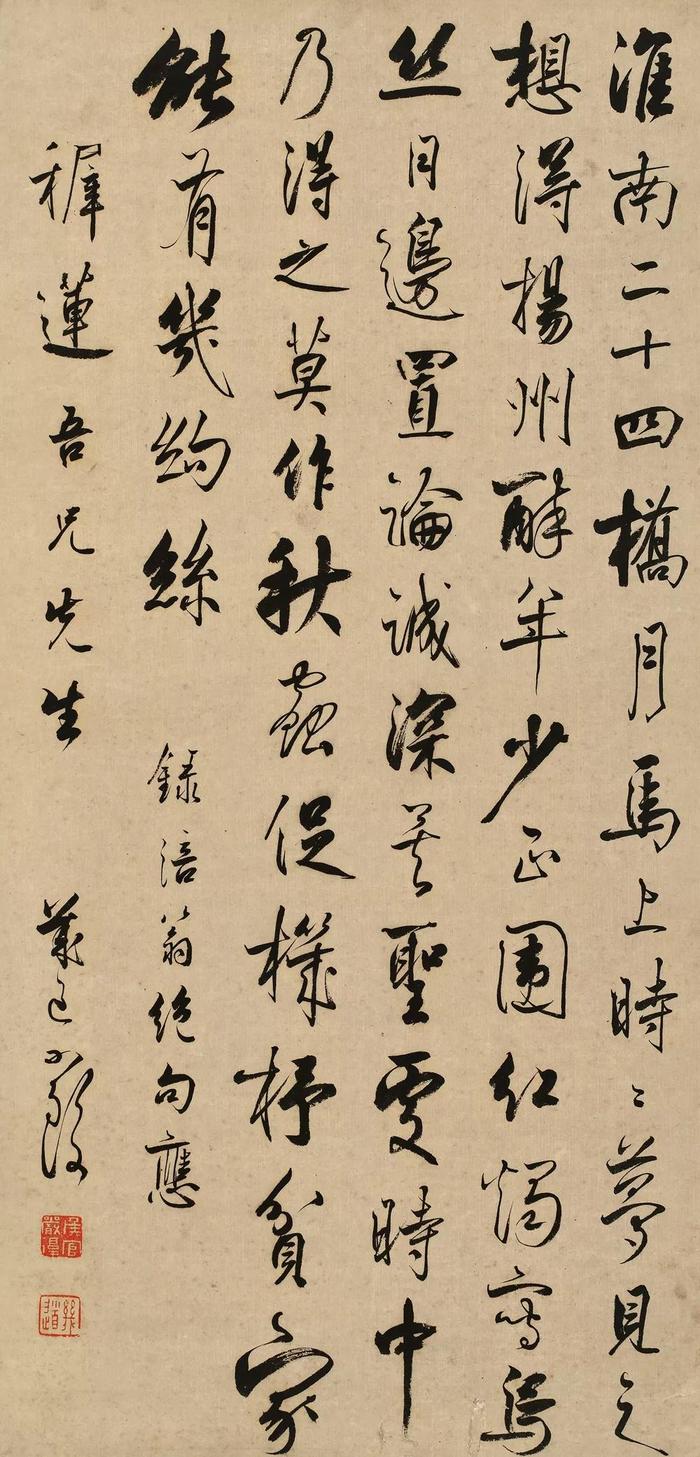 淮南二十四橋月馬上時〻夢見之
想得揚州醉年少正圍紅燭寫烏
丝日邊置論誠深矣聖處時中
乃得之莫作秋蟲促機杼貧家
能有幾絇絲 錄涪翁絕句應
穉蓮吾兄先生 嚴復
侯官嚴復
幾道